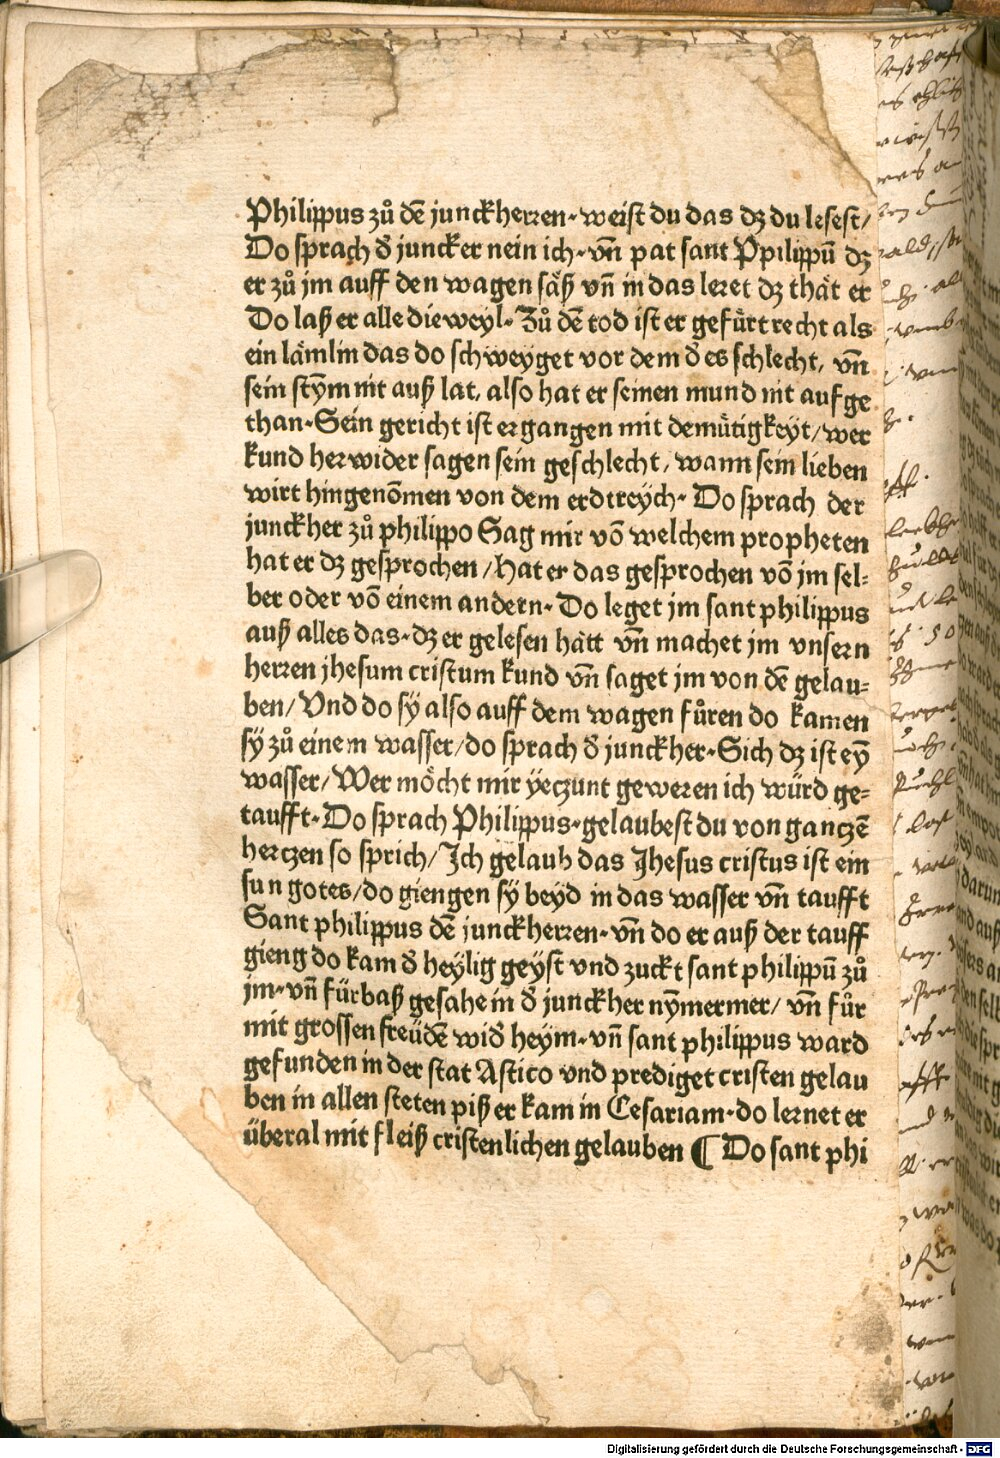 Philippus zů dē junckherren · weist du das dz du lesest /
Do sprach d̕ juncker nein ich · vn̄ pat sant Ppilippū dz
er zů jm auff den wagen säß vn̄ in das leret dz thät er
Do laß er alle die weyl · Zů dē tod ist er gefürt recht als
ein lämlin das do schweyget vor dem d̕ es schlecht, vn̄
sein stym̄ nit auß lat, also hat er seinen mund nit aufge
than · Sein gericht ist ergangen mit demütigkeyt / wer
kund her wider sagen sein geschlecht / wann sein lieben
wirt hingenōmen von dem erdtreych · Do sprach der
junckher zů philippo Sag mir vō welchem propheten
hat er dz gesprochen / hat er das gesprochen vō jm sel⸗
ber oder vō einem andern · Do leget jm sant philippus
auß alles das · dz er gelesen hätt vn̄ machet jm vnsern
herren jhesum cristum kund vn̄ saget jm von dē gelau⸗
ben / Vnd do sy also auff dem wagen fůren do kamen
sy zů einem wasser / do sprach d̕ junckher · Sich dz ist eȳ
wasser / Wer möcht mir yeczunt geweren ich würd ge⸗
taufft · Do sprach Philippus · gelaubest du von ganczē
herczen so sprich / Ich gelaub das Jhesus cristus ist ein
sun gotes / do giengen sy beyd in das wasser vn̄ taufft
Sant philippus dē junckherren · vn̄ do er auß der tauff
gieng do kam d̕ heylig geyst vnd zuckt sant philippū zů
jm · vn̄ fürbaß gesahe in d̕ junckher nym̄ermer / vn̄ fůr
mit grossen freüdē wid̕ heym · vn̄ sant philippus ward
gefunden in der stat Astico vnd prediget cristen gelau
ben in allen steten piß er kam in Cesariam · do lernet er
überal mit fleiß cristenlichen gelauben ¶ Do sant phi
Digitalisierung gefördert durch die Deutsche Forschungsgemeinschaft - DFG